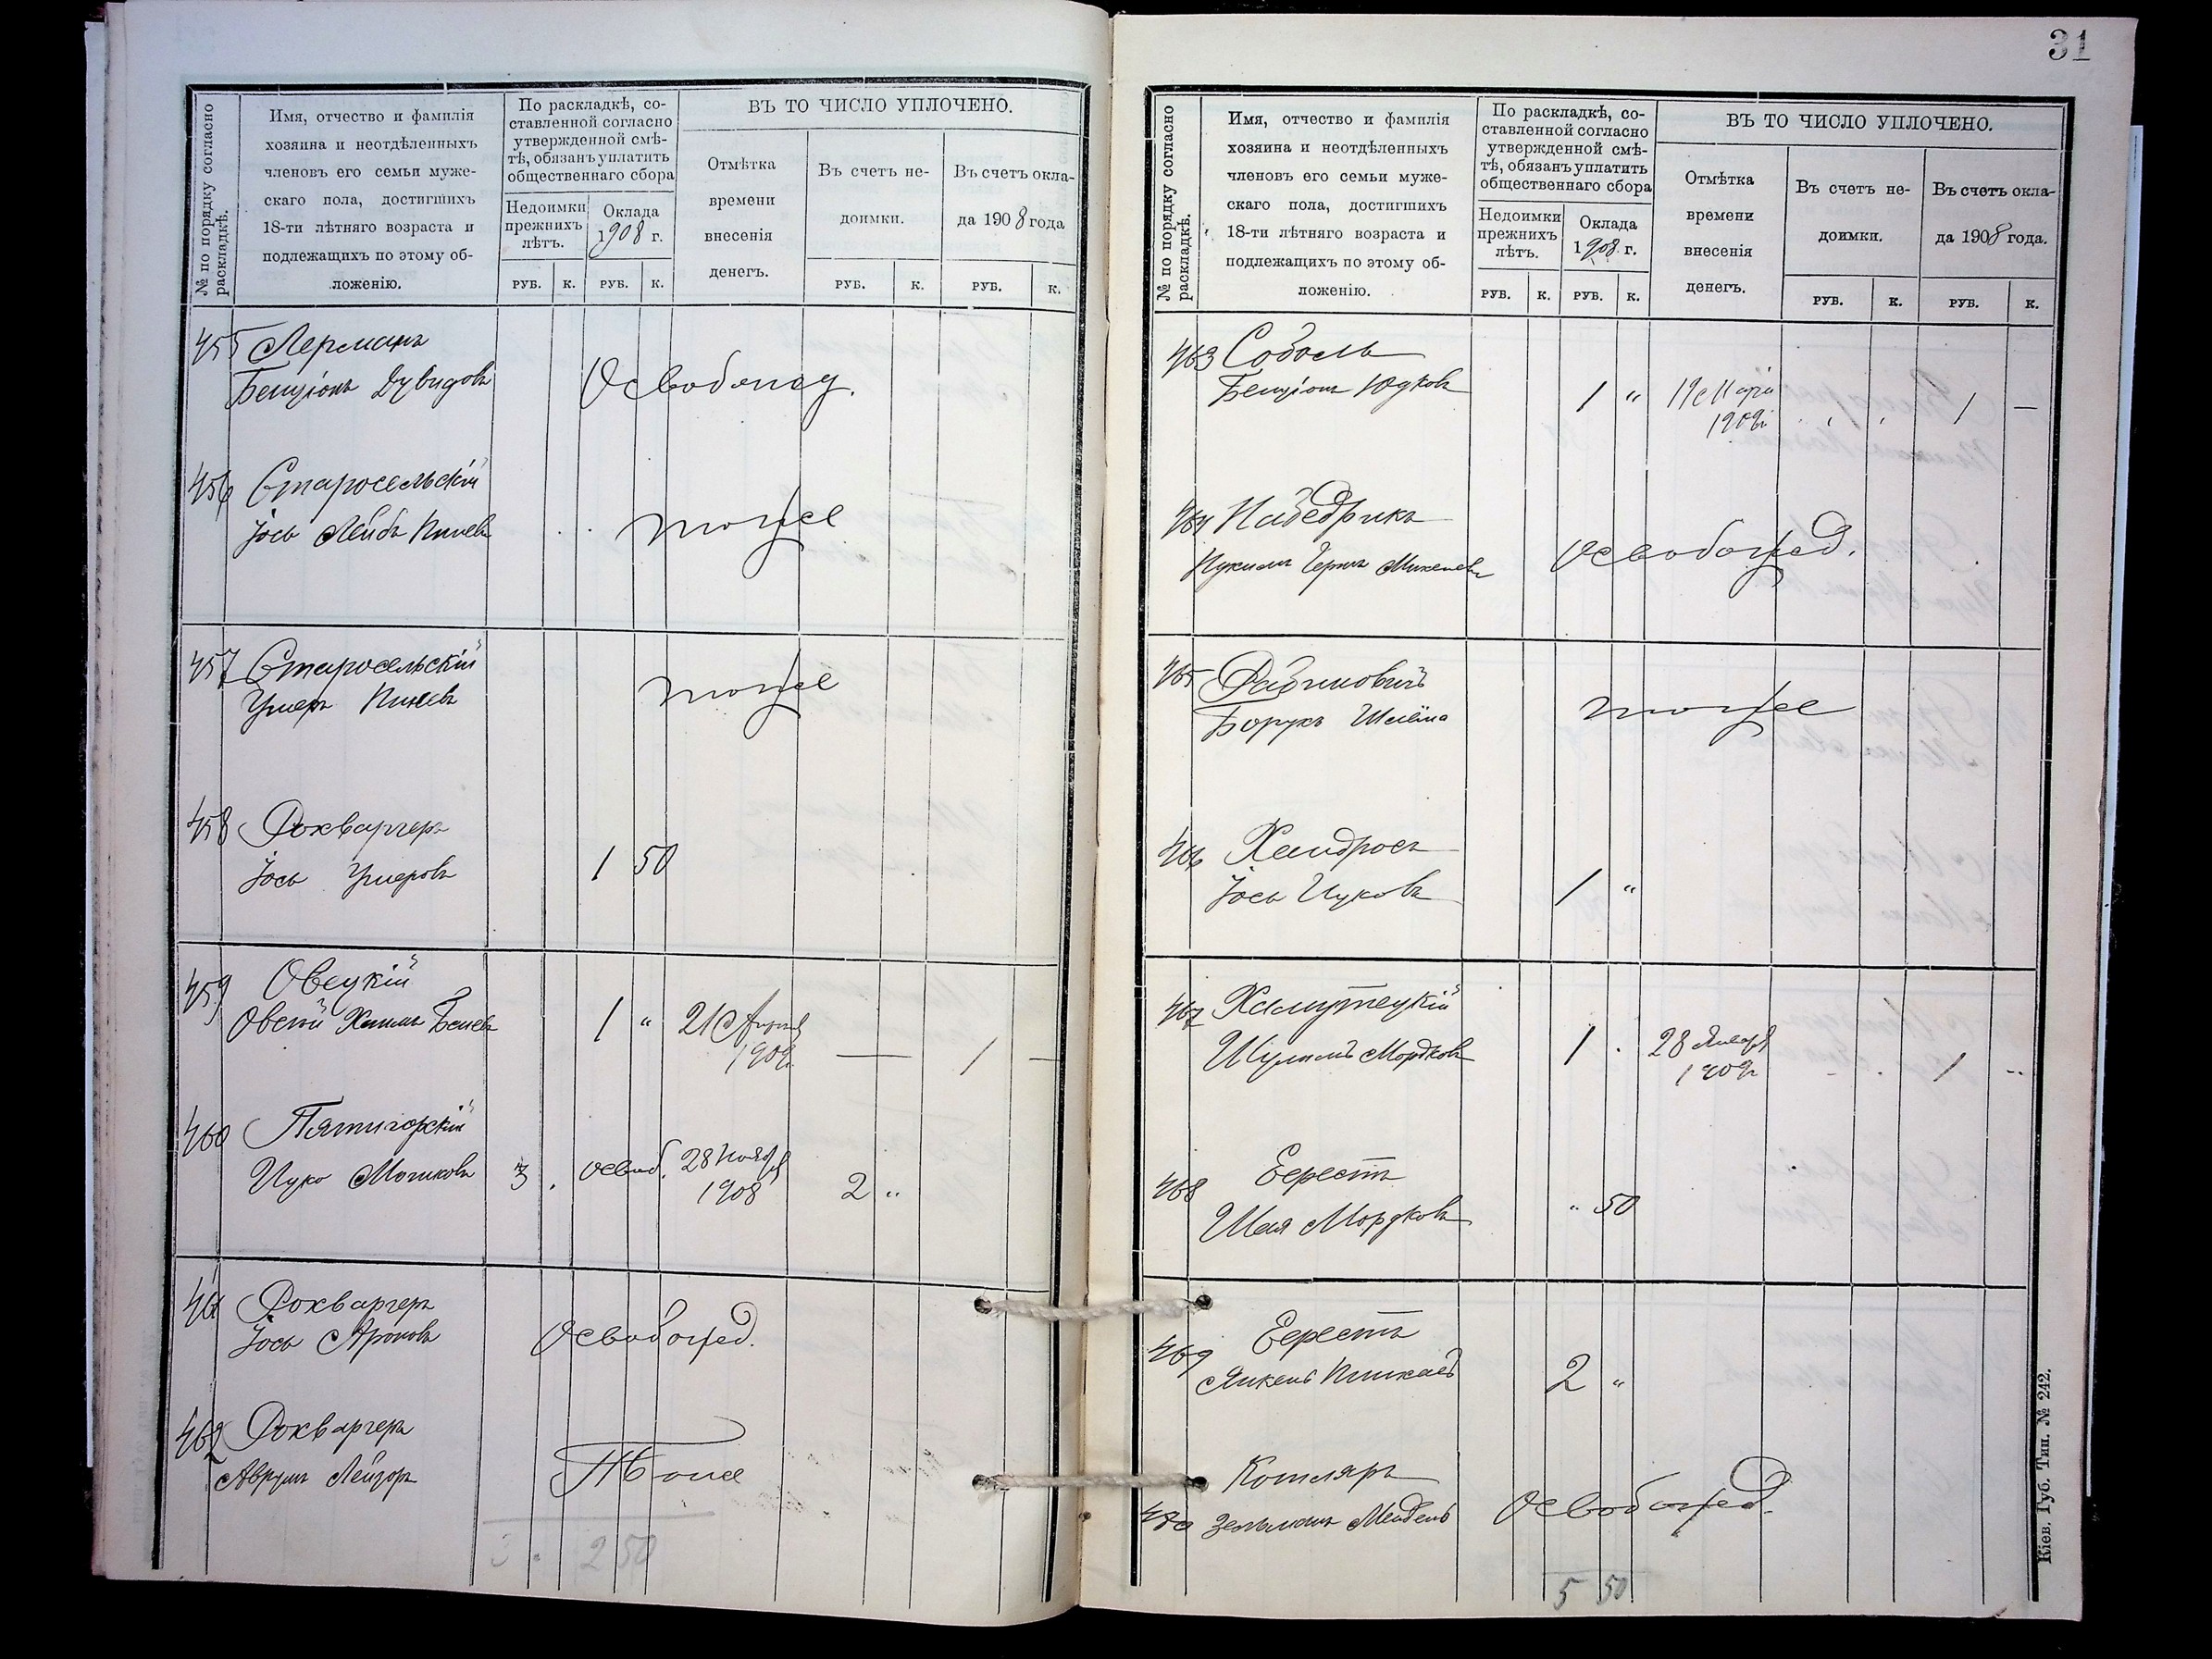 31
№ по порядку согласно
раскладкѣ.
Имя, отчество и фамилія
хозяина и неотдѣленныхъ
членовъ его семьи муже-
скаго пола, достигшихъ
18-ти лѣтняго возраста и
подлежащихъ по этому об-
ложенію.
По раскладкѣ, со-
ставленной согласно
утвержденной смѣ-
тѣ, обязанъ уплатить
общественнаго сбора
Недоимки
прежнихъ
лѣтъ.
Оклада
1908 г.
РУБ. К. РУБ. К.
ВЪ ТО ЧИСЛО УПЛОЧЕНО.
Отмѣтка
времени
внесенія
денегъ.
Въ счетъ не-
доимки.
РУБ. К.
Въ счетъ окла-
да 1908 года
РУБ. К.
455 Лерманъ
Бенціонъ Дувидовъ Освобожд.
456 Старосельскій
Іось Лейбъ Пинев тоже
457 Старосельскій
Умеръ Пинев тоже
458 Рокваргеръ
Іось Умеровъ 1 50
459 Овецкій
Овсей Хаимъ Бенев 1 " 21 Апрѣля
1909 — 1 —
460 Пятигорскій
Ицко Мошковъ 3 . освоб. 28 Ноября
1908 2 "
461 Рокваргеръ
Іось Ароновъ Освобожд.
462 Рокваргеръ
Аврумъ Лейзоръ Тоже
3 . 2 50
№ по порядку согласно
раскладкѣ.
Имя, отчество и фамилія
хозяина и неотдѣленныхъ
членовъ его семьи муже-
скаго пола, достигшихъ
18-ти лѣтняго возраста и
подлежащихъ по этому об-
ложенію.
По раскладкѣ, со-
ставленной согласно
утвержденной смѣ-
тѣ, обязанъ уплатить
общественнаго сбора
Недоимки
прежнихъ
лѣтъ.
Оклада
1908 г.
РУБ. К. РУБ. К.
ВЪ ТО ЧИСЛО УПЛОЧЕНО.
Отмѣтка
времени
внесенія
денегъ.
Въ счетъ не-
доимки.
РУБ. К.
Въ счетъ окла-
да 1908 года.
РУБ. К.
463 Соболь
Бенціонъ Юдковъ 1 " 19
1909 1 —
464 Набедрикъ
Освобожд.
465 Рабиновичъ
Борухъ Шлёма тоже
466 Хандросъ
Іось Ицковъ 1 "
467
Шулимъ Мордковъ 1 . 28 Января
1909 1
468 Еерестъ
Шая Мордковъ " 50
469 Еерестъ
Янкель 2 "
470 Котляръ
Зельманъ Мендель Освобожд.
5 50
Кіев. Губ. Тип. № 242.